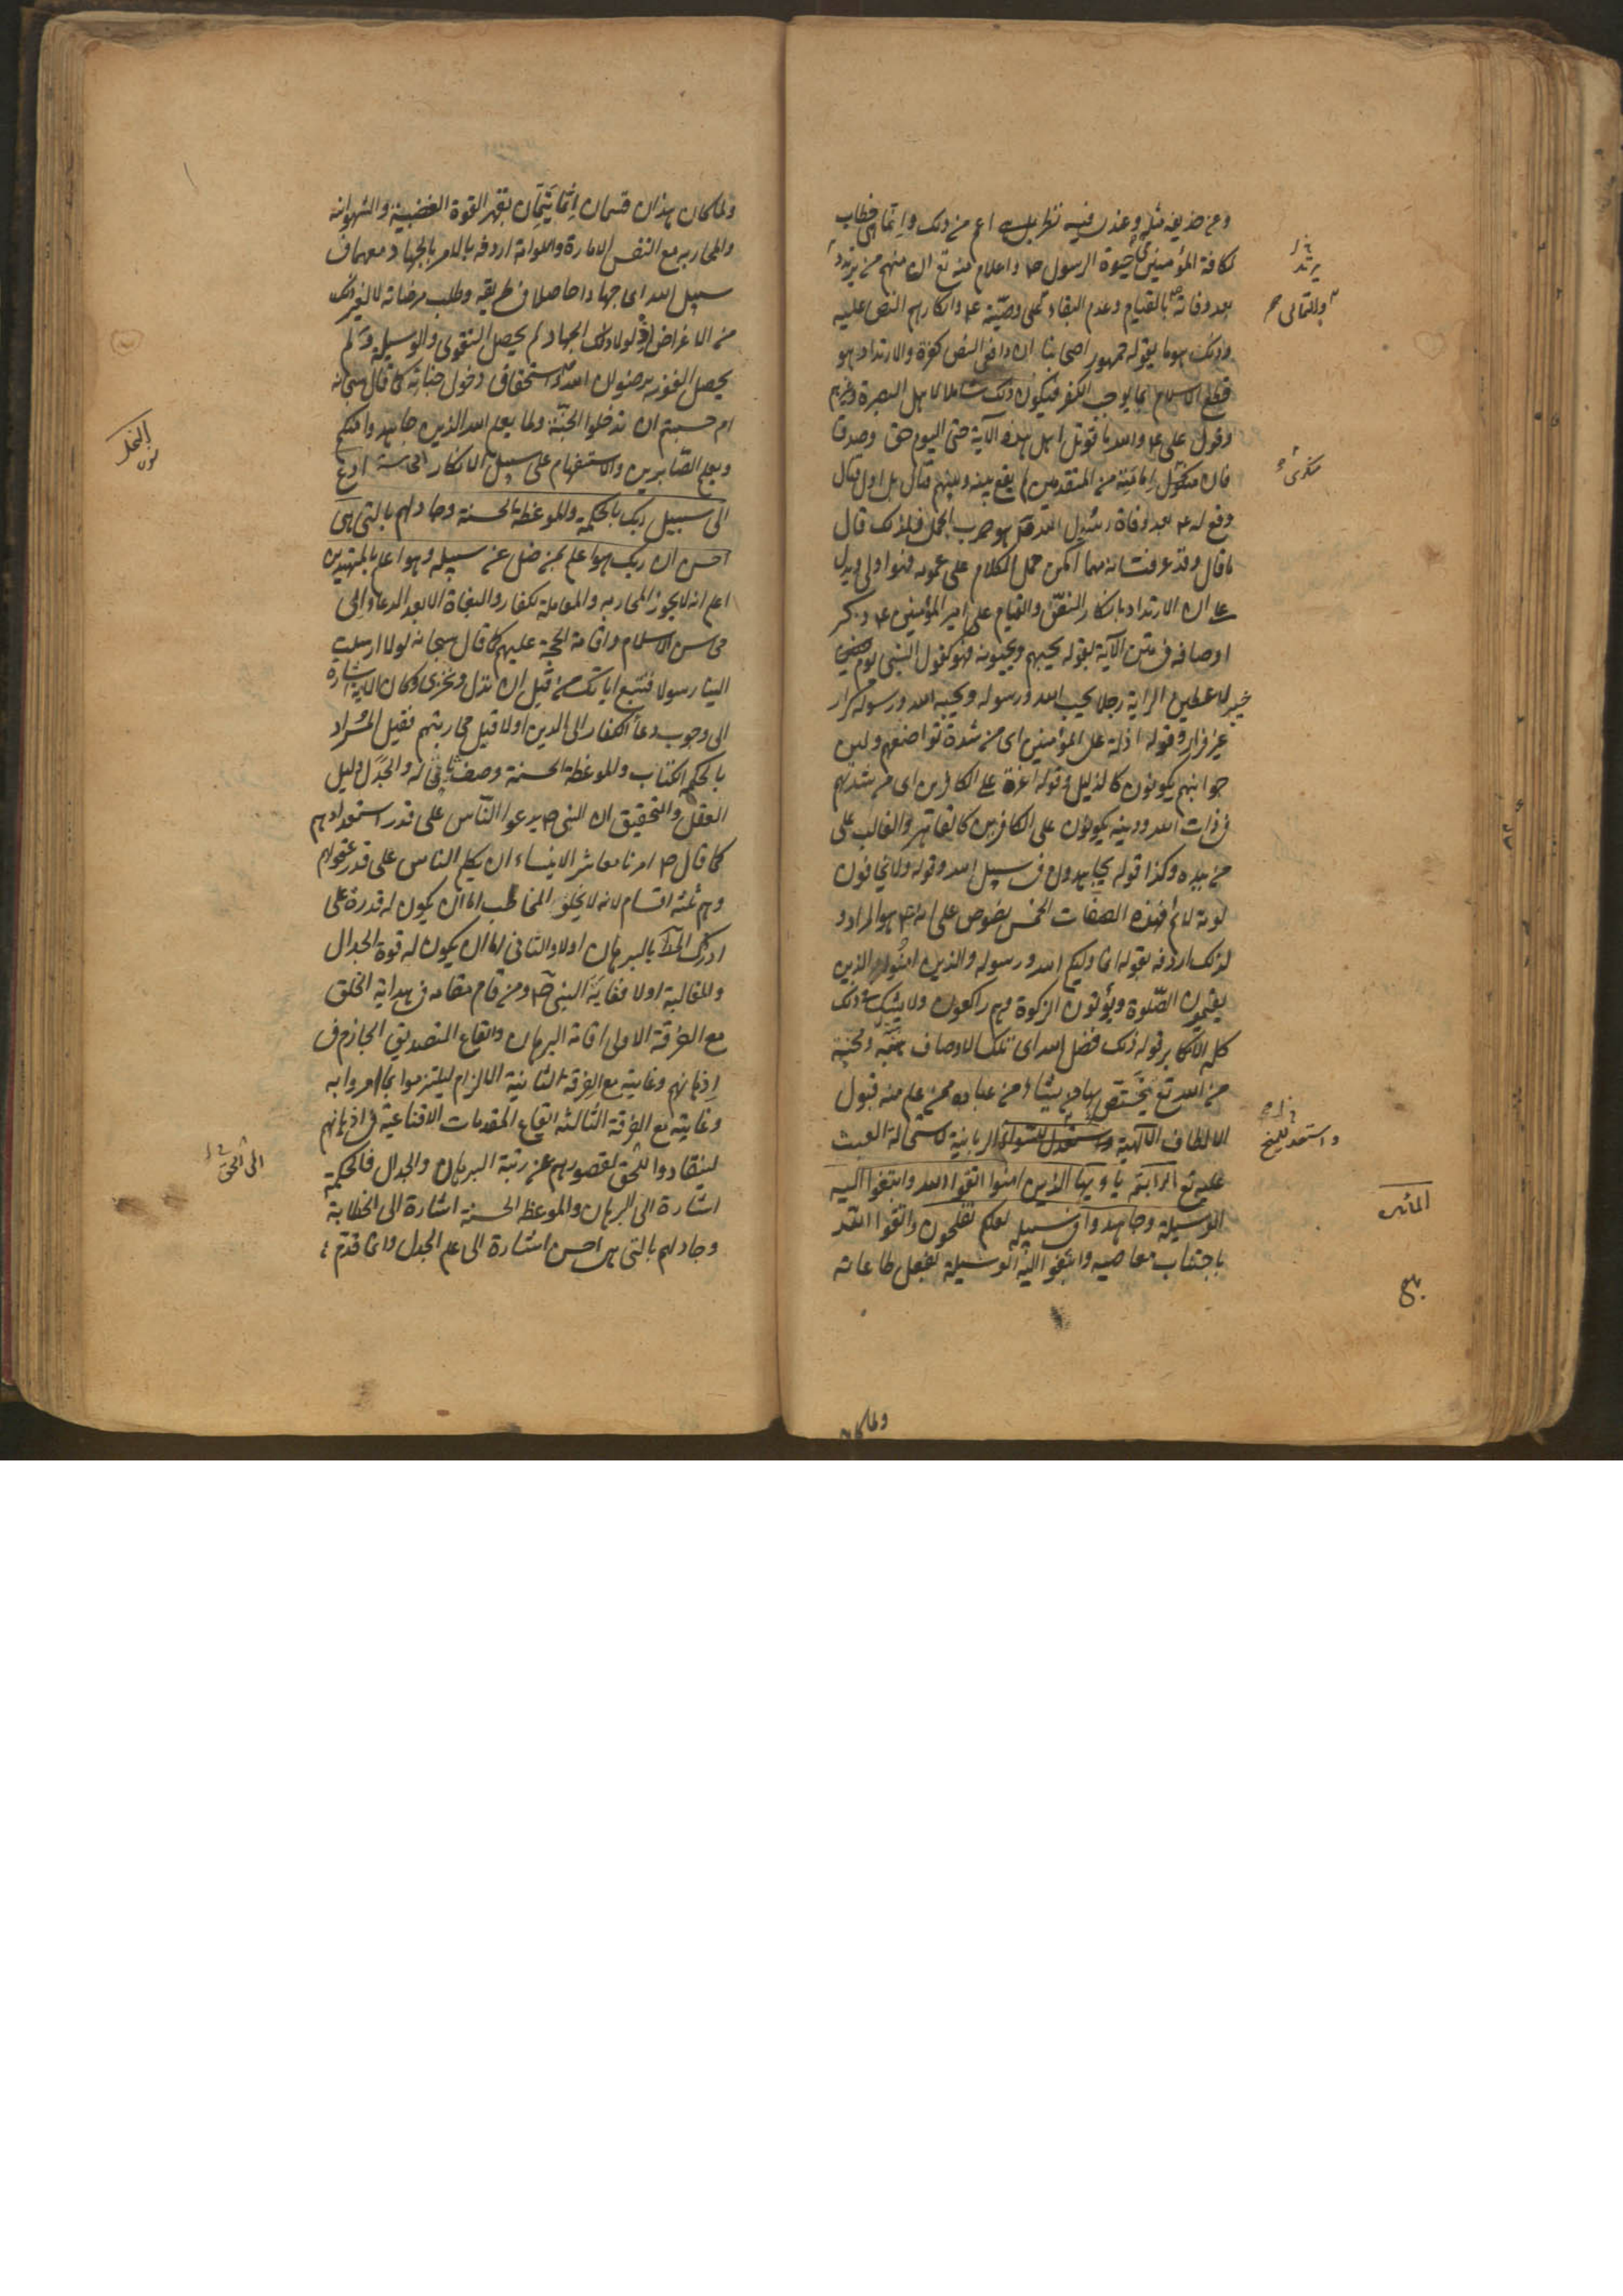 وعن حذيفه مثله وعندى فيه نظر بل هى اعم من ذلك وانما هى خطاب
لكافة المؤمنين فى حيوة الرسول ص واعلام منه تع ان منهم من يرتد
بعد وفاته بالقيام وعدم البقاء على وصيّه ع وانكارهم النص عليه
وذلك هو ما يقوله جمهور اصحابنا ان دافعى النص كفرة والارتداد هو
قطع الاسلام بما يوجب الكفر فيكون ذلك شاملا لاهل البصرة وغيرهم
وقول على ع والله ما قوتل اهل هذه الآية حتى اليوم حق وصدق
فان منكرى امامته من المتقدمين لم يقع بينه وبينهم قتال بل اول قتال
وقع له ع بعد وفاة رسول الله ص هو حرب الجمل فلذلك قال
ما قال وقد عرفت انه مهما امكن حمل الكلام على عمومه فهو اولى ويدل
على ان الارتداد بانكار النصّ والقيام على امير المؤمنين ع ذكر
اوصافه فى متن الآية بقوله يحبهم ويحبونه فهو كقول النبى يوم
خيبر لاعطين الراية رجلا يحب الله ورسوله ويحبه الله ورسوله كرار
غير فرار وقوله اذلة على المؤمنين اى من شدة تواضعهم ولين
جوانبهم يكونون كالذليل وقوله اعزة على الكافرين اى من شدتهم
فى ذات الله ودينه يكونون على الكافرين كالقاهر والغالب على
من بيده وكذا قوله يجاهدون فى سبيل الله وقوله ولا يخافون
لومة لائم فهذه الصفات الخمس نصوص على انه ع هو المراد و
لذلك اردفه بقوله انما وليكم الله ورسوله والذين امنوا الذين
يقيمون الصّلوة ويؤتون الزكوة وهم راكعون ولا يشك فى ذلك
كله الا مكابر قوله ذلك فضل الله اى تلك الاوصاف
من الله تع يختص بها من يشاء من عباده ممن علم منه قبول
الالطاف الالهية الربانية لاستحالة العبث
عليه تع الرابعة يا ايها الذين امنوا اتقوا الله وابتغوا اليه
الوسيلة وجاهدوا فى سبيله لعلكم تفلحون واتقوا الله
باجتناب معاصيه وابتغوا اليه الوسيلة بفعل طاعاته
يرتد
والتمالى
منكرى
واستعد للمنح
المائده
ولما كان
ولما كان هذان قسمان انما يتمان بقهر القوة الغضبية والشهوانيه
والمحاربه مع النفس الامارة واللوامة اردفه بالامر بالجهاد معهما فى
سبيل الله اى جهادا حاصلا فى طريقه وطلب مرضاته لا لغير ذلك
من الاغراض اذ لولا ذلك الجهاد لم يحصل التقوى والوسيلة ولم
يحصل الفوز برضوان الله واستحقاق دخول جناته كما قال سبحانه
ام حسبتم ان تدخلوا الجنّة ولما يعلم الله الذين جاهدوا منكم
ويعلم الصّابرين والاستفهام على سبيل الانكار الخامسة ادع
الى سبيل ربك بالحكمة والموعظة الحسنة وجادلهم بالتى هى
احسن ان ربك هو اعلم بمن ضل عن سبيله وهو اعلم بالمهتدين
اعلم انه لا يجوز المحاربه والمقابلة للكفار والبغاة الا بعد الدعاء الى
محاسن الاسلام واقامة الحجة عليهم كما قال سبحانه لولا ارسلت
الينا رسولا فنتبع اياتك من قبل ان نذل ونخزى وكان الآية اشارة
الى وجوب دعاء الكفار الى الدين اولا قبل محاربتهم فقيل المراد
بالحكمة الكتاب والموعظة الحسنة وصف ما فى له والجدل دليل
العقل والتحقيق ان النبى ص يدعو النّاس على قدر استعدادهم
كما قال ص امرنا معاشر الانبياء ان نكلم الناس على قدر عقولهم
وهم ثلثة اقسام لانه لا يخلو المخاطب اما ان يكون له قدرة على
ادراك الحق بالبرهان اولا والثانى اما ان يكون له قوة الجدال
والمغالبة اولا فغاية النبى ص ومن قام مقامه فى هداية الخلق
مع الفرقة الاولى اقامة البرهان وايقاع التصديق الجازم فى
اذهانهم وغايته مع الفرقة الثانية الالزام ليلتزموا بما امروا به
وغايته مع الفرقة الثالثة ايقاع المقدمات الاقناعية فى اذهانهم
لينقادوا للحق لقصورهم عن رتبة البرهان والجدال فالحكمة
اشارة الى البرهان والموعظ الحسنة اشارة الى الخطابة
وجادلهم بالتى هى احسن اشارة الى علم الجدل وانما قدم
النحل
الى الحق